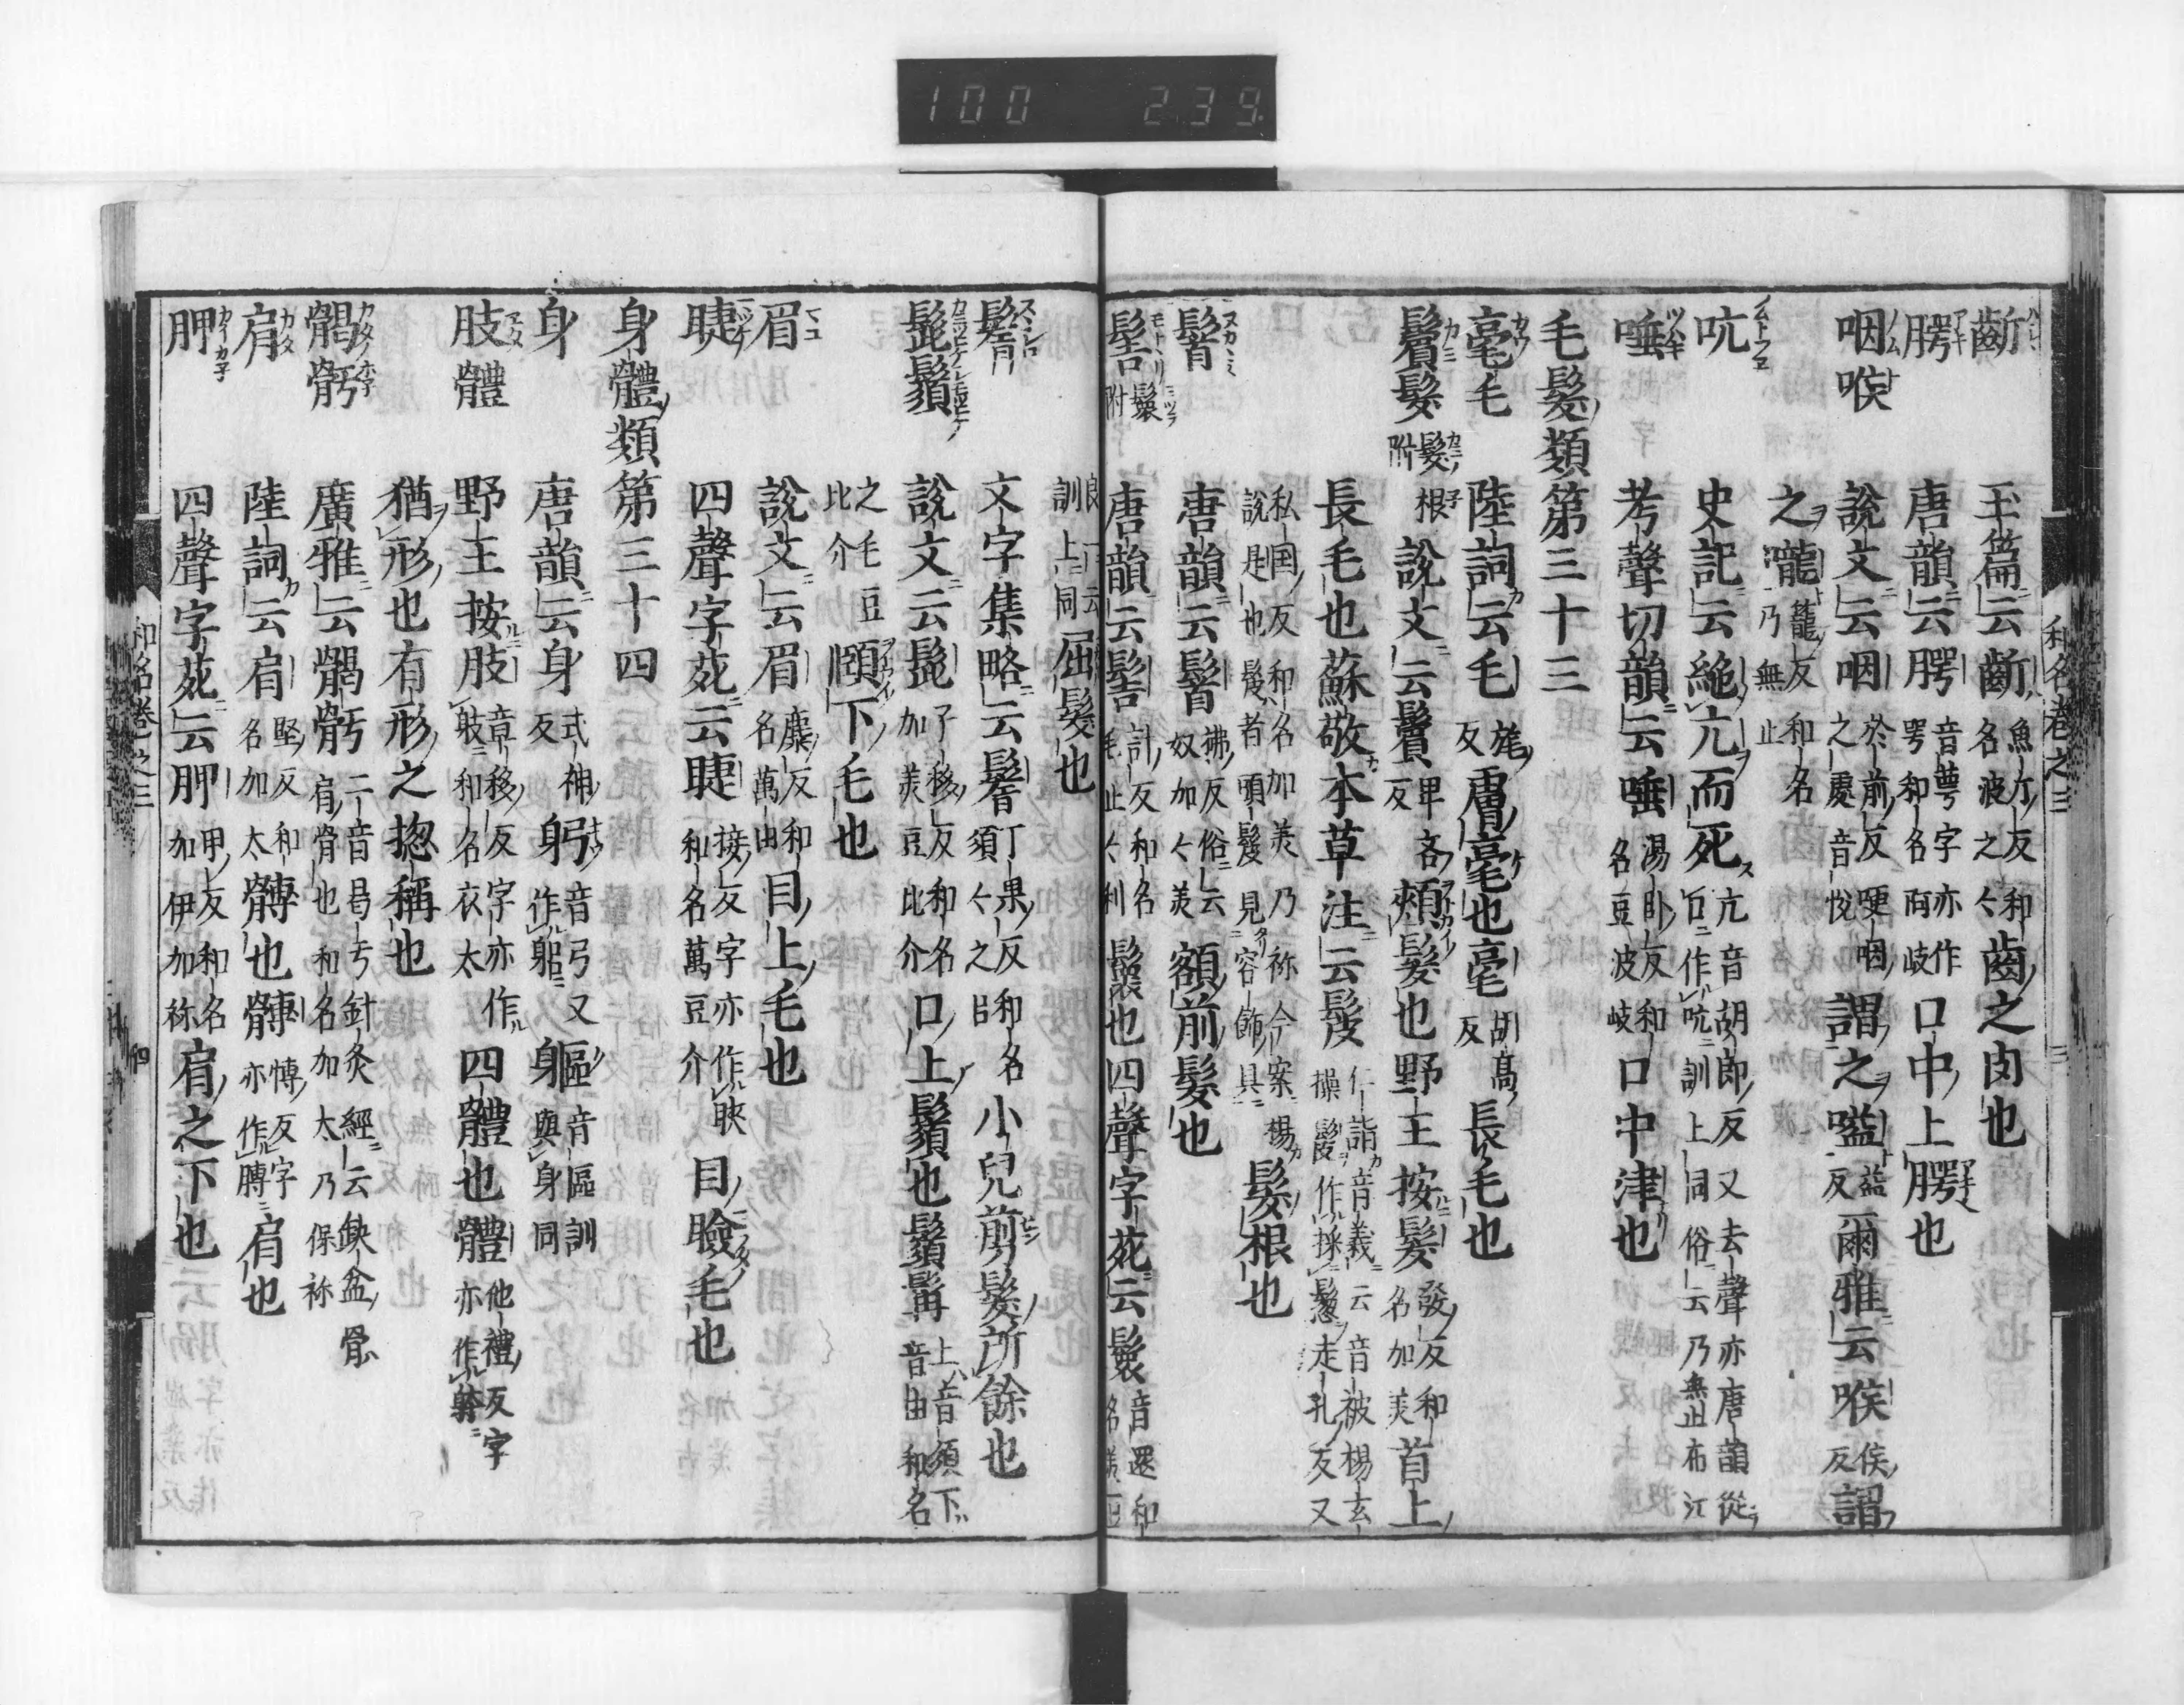 100 2.39.
齗 玉篇云齗 魚斤反和名波之々 齒之肉也
腭 唐韻云腭 音萼字亦作咢和名阿岐 口中上腭也
咽喉 說文云咽 於前反 之處音悅哽咽 謂之嗌 益反 爾雅云喉 侯反 謂
之嚨 籠反和名乃無止
吭 史記云絶亢而死 亢音胡郎反又去聲亦作吭訓上同俗云乃無止布江 唐韻從
唾 考聲切韻云唾 湯臥反和名豆波岐 口中津也
毛髮類第三十三
毫毛 陸詞云毛 旄反 膚毫也毫 胡高反 長毛也
鬢髮 髮根附 說文云鬢 卑吝反 頰髮也野王按髮 發反和名加美 首上
長毛也蘇敬本草注云髲 仁諝音義云音被楊玄操髲作㨨 走孔反又
私国反和名加美乃祢今案楊說是也鬉者頭髮見容飾具 髮根也
髻 唐韻云髻 拂反俗云奴加々美 額前髮也
髻 鬟附 唐韻云髻 計反和名毛止々利 鬟也四聲字苑云鬟 音還和名美豆
良一云訓上同 屈髮也
鬌 文字集略云鬌 丁果反和名須々之呂 小兒剪髮所餘也
髭鬚 說文云髭 子移反和名加美豆比介 口上鬚也鬚髯 上音須下音由和名
之毛豆比介 頤下毛也
眉 說文云眉 麋反和名萬由 目上毛也
睫 四聲字苑云睫 接反字亦作䀹和名萬豆介 目瞼毛也
身體類第三十四
身 唐韻云身 式神反 躬 音弓又作躳 軀 音區訓與身同
肢體 野王按肢 章移反字亦作𨈛和名衣太 四體也體 他禮反字亦作軆
猶形也有形之惣稱也
𩩲骬 廣雅云𩩲骬 二音曷亏針灸經云缺盆骨肩骨也和名加太乃保祢
肩 陸詞云肩 堅反和名加太 髆也髆 博反字亦作膊 肩也
胛 四聲字苑云胛 甲反和名加伊加祢 肩之下也
和名卷之三 三
和名卷之三 四